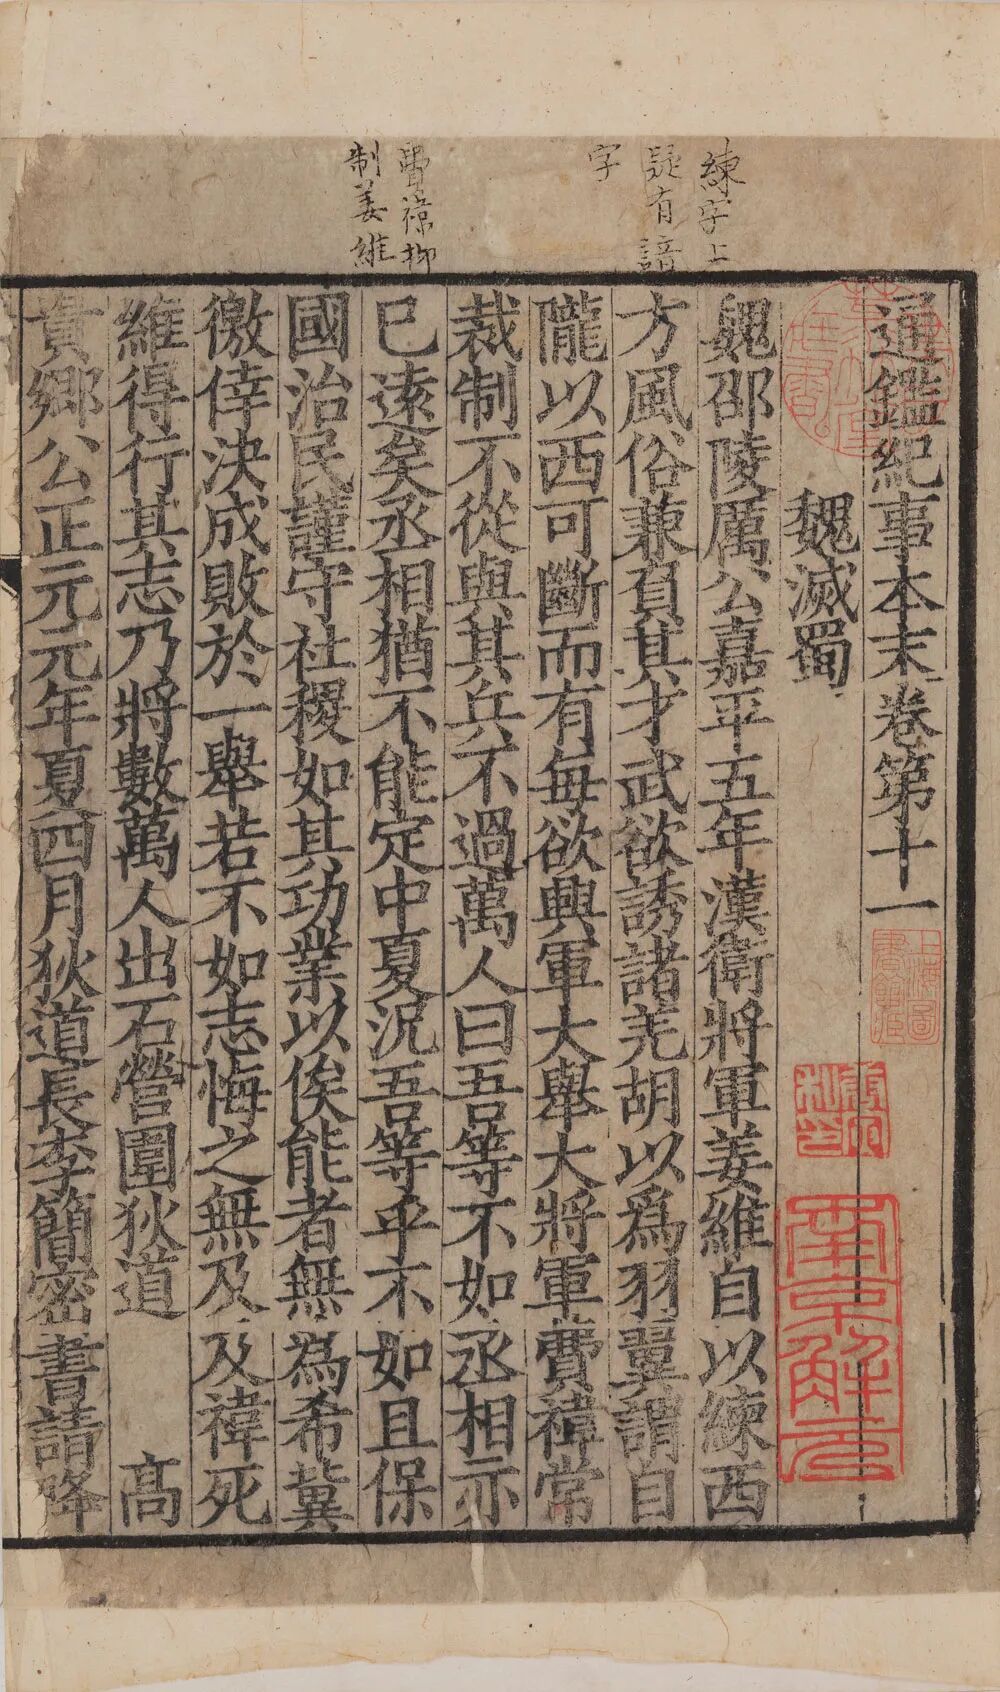 練字上
疑有諳
字
費禕抑
制姜維
通鑑紀事本末卷第十一
魏滅蜀
魏邵陵厲公嘉平五年漢衛將軍姜維自以練西
方風俗兼負其才武欲誘諸羌胡以爲羽翼謂自
隴以西可斷而有每欲興軍大舉大將軍費禕常
裁制不從與其兵不過萬人曰吾等不如丞相亦
已遠矣丞相猶不能定中夏況吾等乎不如且保
國治民謹守社稷如其功業以俟能者無為希冀
徼倖決成敗於一舉若不如志悔之無及及禕死
維得行其志乃將數萬人出石營圍狄道 高
貴鄉公正元元年夏四月狄道長李簡密書請降
上海圖
書館藏
南京解元